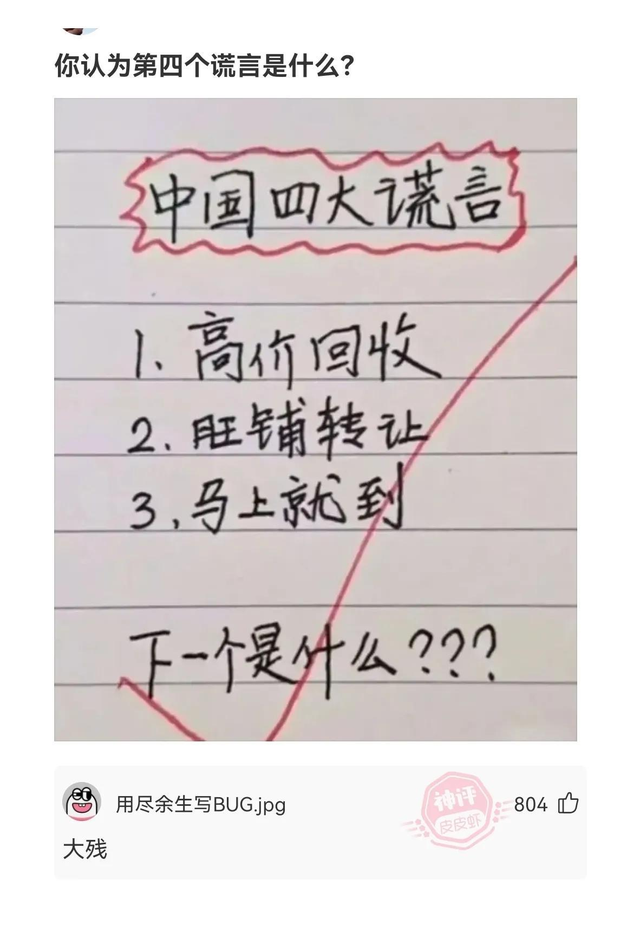 你认为第四个谎言是什么?
中国四大谎言
1、高价回收
2、旺铺转让
3、马上就到
下一个是什么???
用尽余生写BUG.jpg
神评
皮皮虾
804
大残